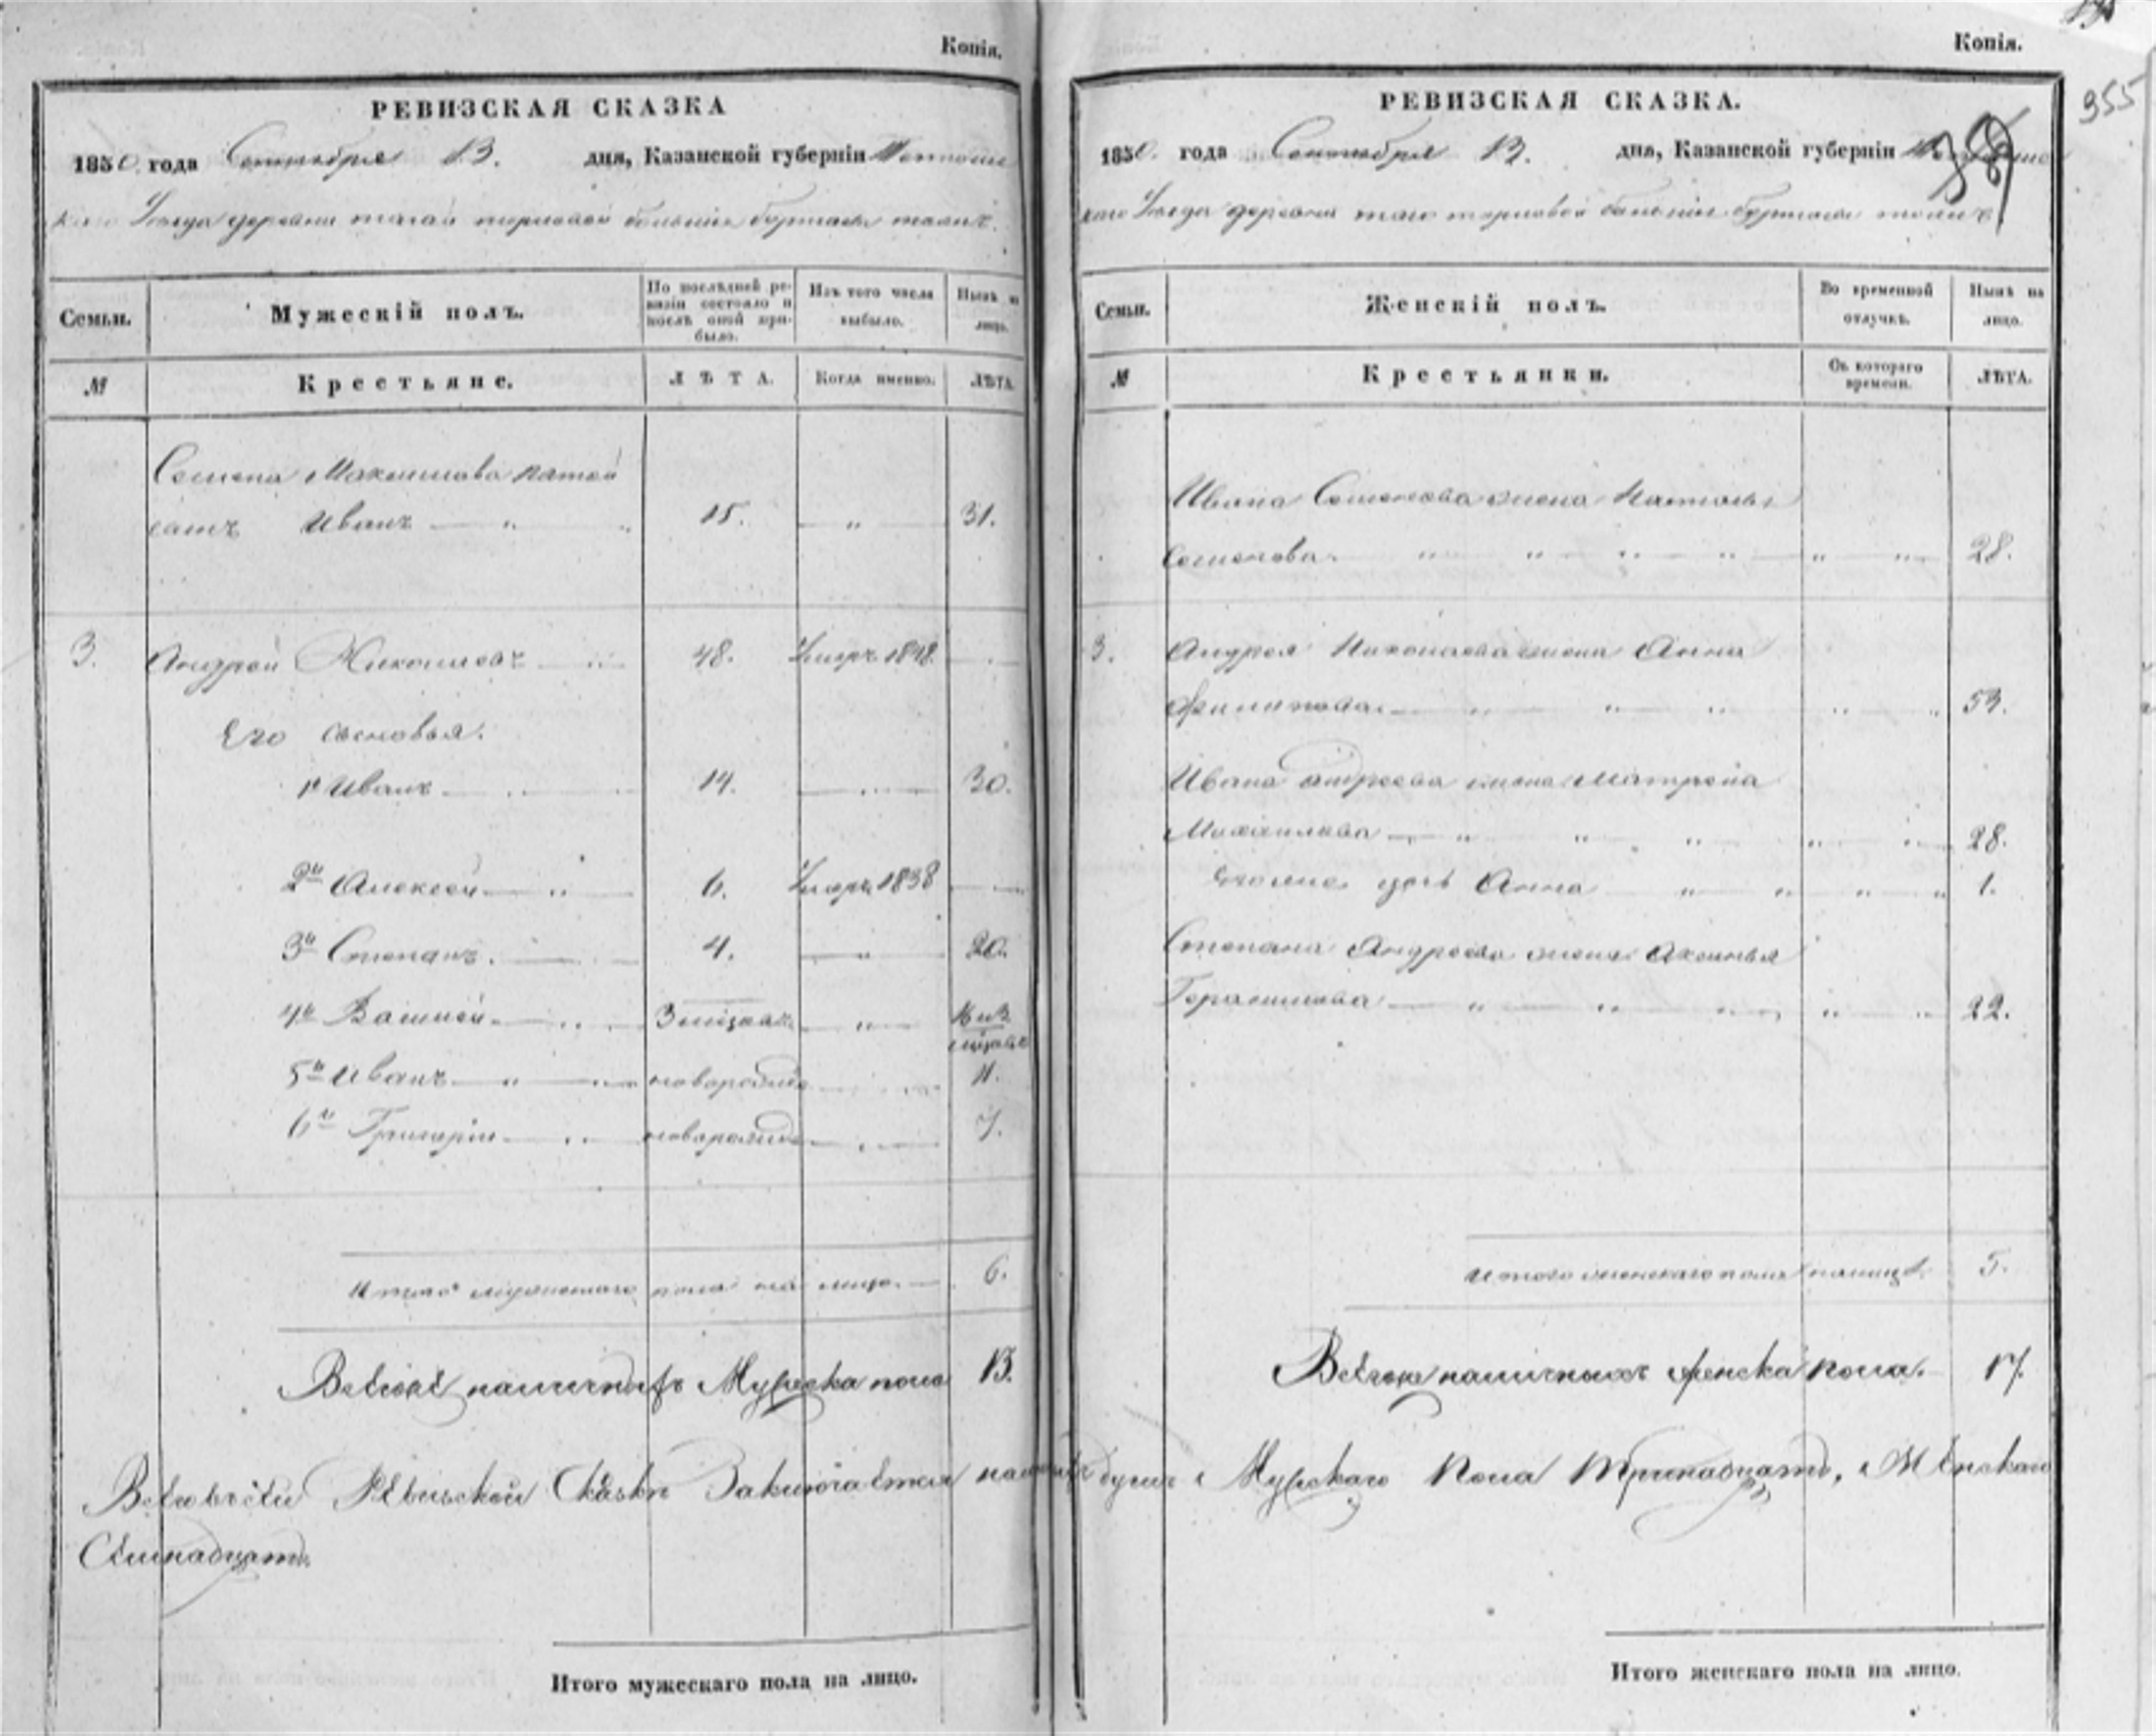 Копія.
РЕВИЗСКАЯ СКАЗКА
1850 года Сентября 13. дня, Казанской губерніи
Уезда деревни большіе буртасы тожъ.
Семьи. Мужескій полъ. По послѣдней ревизіи состояло и послѣ оной прибыло. Изъ того числа выбыло. Нынѣ на лицо.
№ Крестьяне. ЛѢТА. Когда именно. ЛѢТА
Семена Максимова пятой
сынъ Иванъ — " 15. — " 31.
3. Андрей Николаевъ 48. Умеръ 1848
Его сыновья.
1й Иванъ 14. 30.
2й Алексей 6. Умеръ 1838
3й Степанъ. 4. — " 20.
4й Василей 3 — " 16 и 3
5й Иванъ — " новорожде 11.
6й Григорій новорожде 7.
Итого мужескаго пола на лицо. — 6.
Всего наличныхъ Мужеска пола 13.
Всего в сей Ревизской Сказке Заключается
Семнадцать.
Итого мужескаго пола на лицо.
Копія.
355
РЕВИЗСКАЯ СКАЗКА.
1850. года Сентября 13. дня, Казанской губерніи
каго Уезда деревни большіе буртасы тожъ
Семьи. Женскій полъ. Во временной отлучкѣ. Нынѣ на лицо.
№ Крестьянки. Съ котораго времени. ЛѢТА.
Ивана Семенова жена Наталья
Семенова. 28.
3. Андрея Николаева жена Анна
Филипова 53.
Ивана Андреева жена Матрена
Михайлова 28.
дочь Анна 1.
Степана Андреева жена Аксинья
Герасимова 22.
Итого женскаго пола налицо 5.
Всего наличныхъ женска пола. 17.
душъ Мужскаго Пола Тринадцать, Женскаго
Итого женскаго пола на лицо.